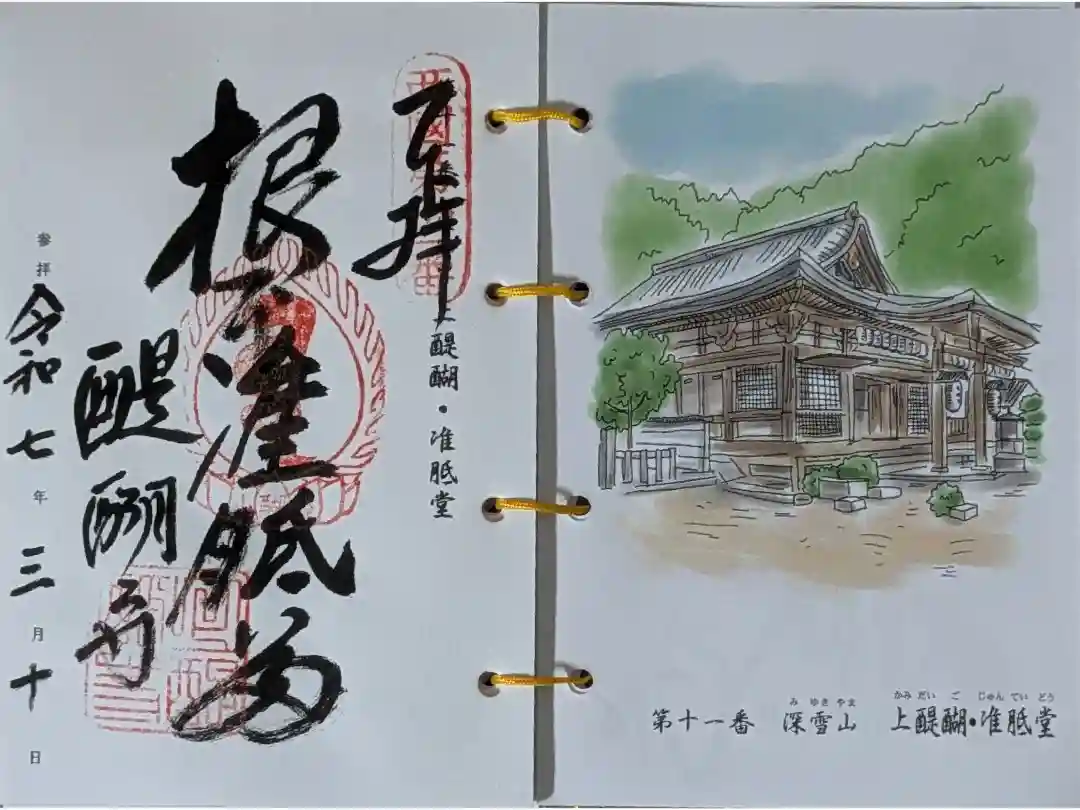 奉拝
上醍醐・准胝堂
根本准胝尊
醍醐寺
参拝 令和七年三月十日
み ゆき やま かみ だい ご じゅん てい どう
第十一番 深雪山 上醍醐・准胝堂